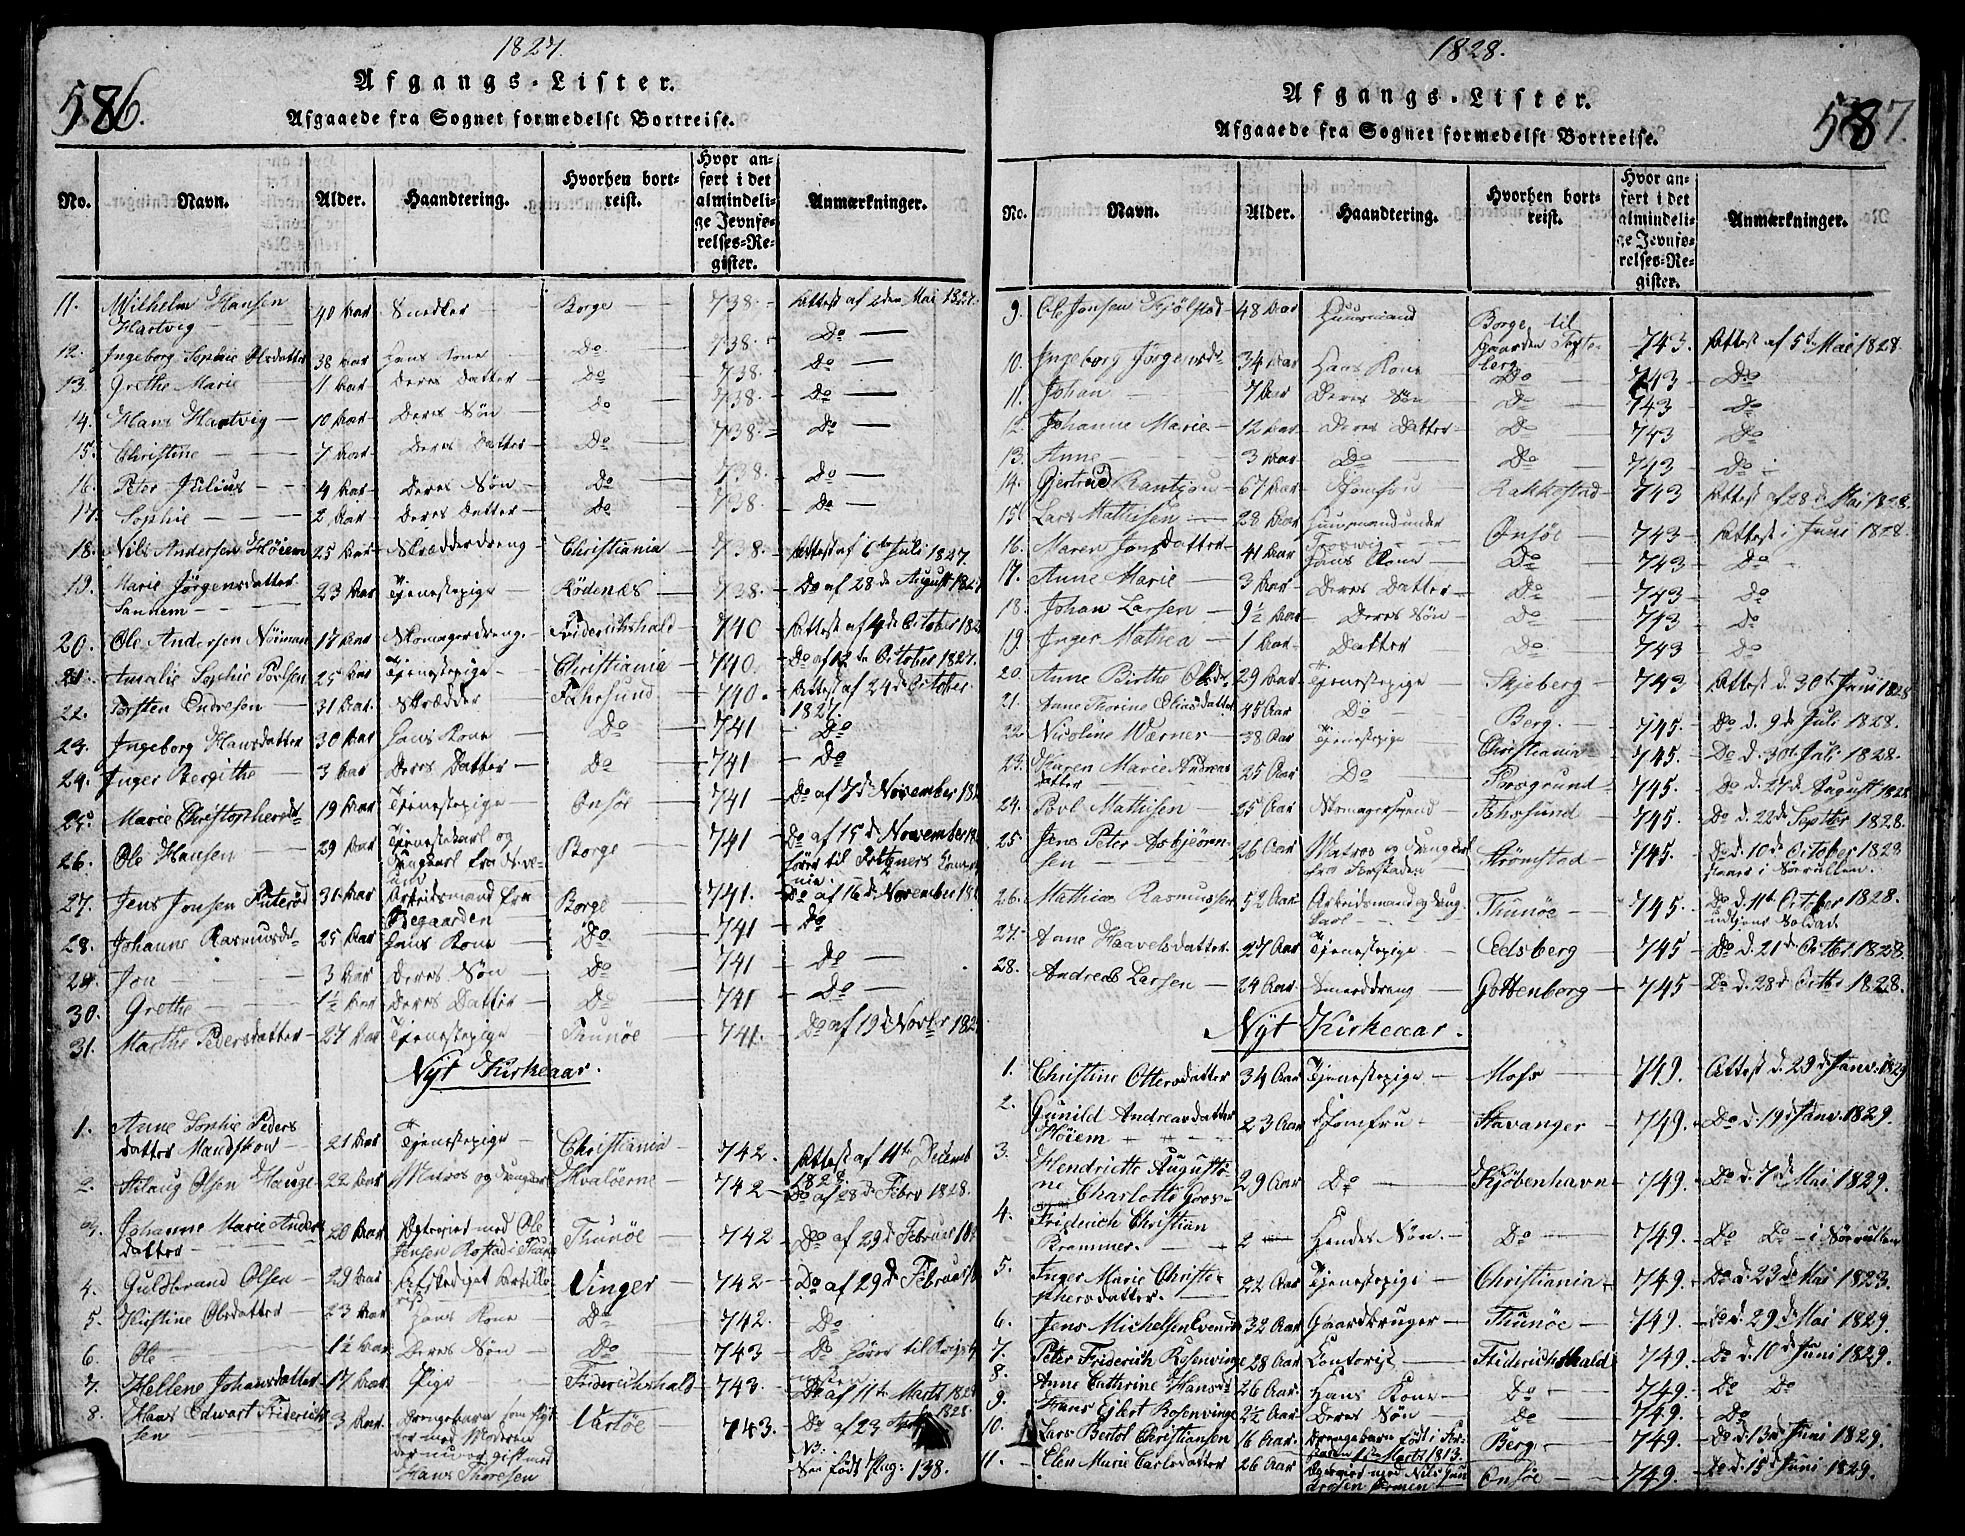 1827.
586.
Afgangs-Lister.
Afgaaede fra Sognet formedelst Bortreise.
No. Navn. Alder. Haandtering. Hvorhen bortreist. Hvor anført i det almindelige Jevnførelses-Register. Anmærkninger.
11. Wilhelm Hansen Hartvig 40 Aar Snedker Borge 738. Attest af Mai 1827.
12. Ingeborg Sophie Olsdatter 38 Aar Hans Kone Do 738. Do
13. Grethe Marie 11 Aar Deres Datter Do 738. Do
14. Hans Hartvig 10 Aar Deres Søn Do 738. Do
15. Christine 7 Aar Deres Datter Do 738. Do
16. Peter Julius 4 Aar Deres Søn Do 738. Do
17. Sophie 2 Aar Deres Datter Do 738. Do
18. Nils Andersen Høiem 25 Aar Skrædderdreng Christiania 738. Attest af 6te Juli 1827.
19. Marie Jørgensdatter Sannem 23 Aar Tjenestepige Rødenæs 738. Do af 28de August 1827
20. Ole Andersen Nøiman 17 Aar Skomagerdreng Friderichshald 740 Attest af 4de October 182
21. Amalie Sophie Poulsen 25 Aar Tjenestepige Christiania 740. Do af 12te October 1827.
22. Torsten Endresen 31 Aar Skrædder Fahrsund 740. Attest af 24de October 1827
23. Ingeborg Hansdatter 30 Aar Hans Kone Do 741 Do
24. Inger Bergithe 3 Aar Deres Datter Do 741 Do
25. Marie Christophersd 19 Aar Tjenestepige Onsøe 741 Do af 7de November 182
26. Ole Hansen 29 Aar Tjenestekarl og Borge 741 Do af 15de November 182 hører til Fritzners
27. Jens Jonsen 31 Aar Arbeidsmand fra Borge 741. Do af 16de November 182
28. Johanne Rasmusd. 25 Aar Hans Kone Do 741 Do
29. Jon 3 Aar Deres Søn Do 741 Do
30. Grethe 1½ Aar Deres Datter Do 741 Do
31. Marthe Pedersdatter 27 Aar Tjenestepige Thunøe 741. Do af 19de Novbr 182
Nyt Kirkeaar.
1. Anne Sophie Pedersdatter Mandskou 21 Aar Tjenestepige Christiania 742. Attest af 11te Decemb
2. Aslaug Olsen Hauge 22 Aar Matros og Hvaløerne 742 Do af 28de Febr 1828.
3. Johanne Marie Andersdatter 20 Aar med Ole Jensen Thunøe 742 Do af 29de Februar 18
4. Guldbrand Olsen 29 Aar Afskediget Vinger 742 Do af 29de Februar
5. Kistine Olsdatter 23 Aar Hans Kone Do 742. Do
6. Ole 1½ Aar Deres Søn Do 743 Do hører til
7. Hellene Johansdatter 17 Aar Pige Friderichshald 743. Do af 11te Marts 1828
8. Hans Edwart Friderichsen 3 Aar Drengebarn som med Moderen der nu er gift med Hans Thoresen Vartøe 743. Do af 23 1828. NB. født Pag: 138.
1828.
587.
Afgangs-Lister.
Afgaaede fra Sognet formedelst Bortreise.
No. Navn. Alder. Haandtering. Hvorhen bortreist. Hvor anført i det almindelige Jevnførelses-Register. Anmærkninger.
9. Ole Jonsen Kjølstad 48 Aar Huusmand Borge til Gaarden 743. Attest af 5te Mai 1828.
10. Ingeborg Jørgensd. 34 Aar Hans Kone Do 743 Do
11. Johan 7 Aar Deres Søn Do 743 Do
12. Johanne Marie 12 Aar Deres Datter Do 743 Do
13. Anne 3 Aar Do Do 743 Do
14. Gjertrud 67 Aar Rakkestad 743 Attest af 28de Mai 1828.
15. Lars Mathisen 28 Aar Huusmand under Onsøe 743 Attest i Juni 1828.
16. Maren Jonsdatter 41 Aar Hans Kone Do 743 Do
17. Anne Marie 3 Aar Deres Datter Do 743 Do
18. Johan Larsen 9½ Aar Deres Søn Do 743 Do
19. Inger Mathea 1 Aar Datter Do 743 Do
20. Anne Birthe Olsd. 29 Aar Tjenestepige Skjeberg 743 Attest d. 30te Juni 1828
21. Anne Thorine Eliasdatter 45 Aar Do Berg. 745. Do d. 9de Juli 1828.
22. Nicoline Wærner 38 Aar Tjenestepige Christiania 745. Do d. 30te Juli 1828.
23. Karen Marie Andreasdatter 25 Aar Do Porsgrund 745. Do d. 27de August 1828
24. Povl Mathisen 25 Aar Skomagersvend Fahrsund 745. Do d. 22de Septbr 1828.
25. Jens Peter Asbjørnsen 26 Aar Matros og fra Forstaden Strømstad 745. Do d. 10de October 1828 staaer i Sørullen.
26. Mathias Rasmussen 52 Aar Arbeidsmand og Thunøe 745. Do d. 11te October 1828. udtjent Soldat
27. Anne Haavelsdatter 27 Aar Tjenestepige Eedsberg 745 Do d. 21de Octbr 1828.
28. Andreas Larsen 24 Aar Smeddreng Gottenberg 745 Do d. 28de Octbr 1828.
Nyt Kirkeaar.
1. Christine Ottersdatter 34 Aar Tjenestepige Moss 749. Attest d. 29de Janv. 1829
2. Gunild Andreasdatter Høiem 23 Aar Jomfru Stavanger 749. Do d. 19de Janv. 1829.
3. Hendriette Augustine Charlotte 29 Aar Do Kjøbenhavn 749. Do d. 7de Mai 1829.
4. Friderich Christian Krammer. 2 Hendes Søn Do 749. Do Do i Sørullen
5. Inger Marie Christophersdatter. 22 Aar Tjenestepige Christiania 749. Do d. 23de Mai 1823.
6. Jens Michelsen 32 Aar Gaardbruger Thunøe 749. Do d. 29de Mai 1829.
7. Peter Friderich Rosenvinge 28 Aar Contorist Friderichshald 749. Do d. 10de Juni 1829.
8. Anne Cathrine Hansd 26 Aar Hans Kone Do 749. Do Do
9. Hans Ejlert Rosenvinge 2½ Aar Deres Søn Do 749. Do
10. Lars Bertol Christiansen 16 Aar. Drengebarn født i Marts 1813. Berg 749. Do d. 13de Juni 1829.
11. Elen Marie Carlsdatter 26 Aar med Nils Onsøe 749. Do d. 15de Juni 1829.